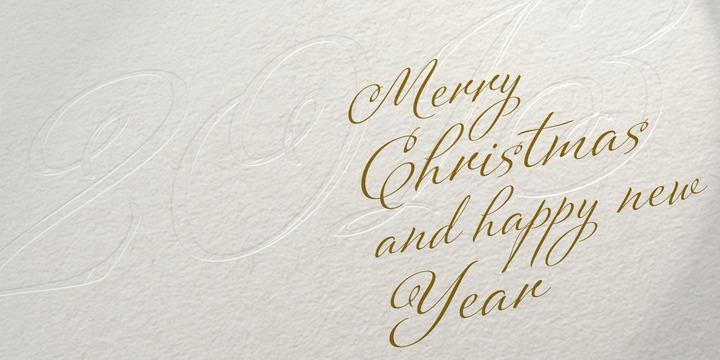 Merry
Christmas
and happy new
Year